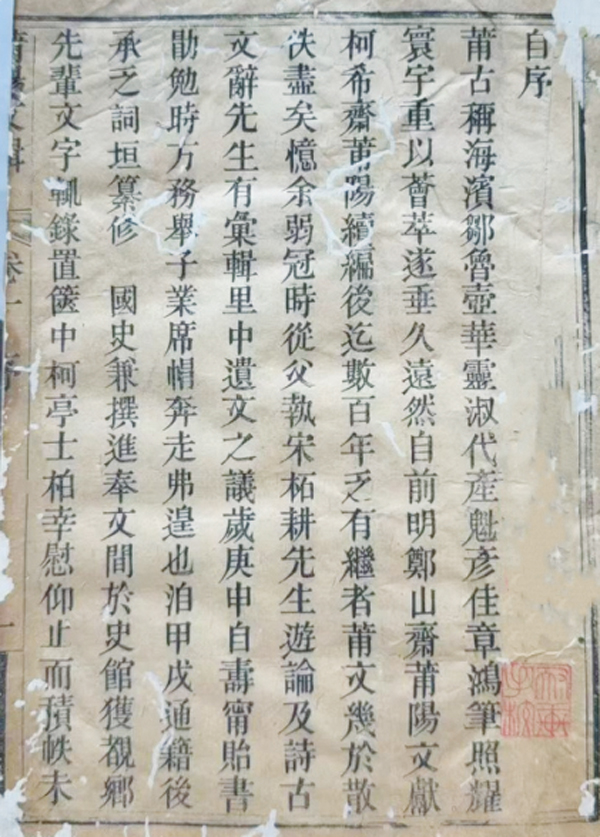 自序
莆古稱海濱鄒魯壺華靈淑代產魁彥佳章鴻筆照耀
寰宇重以薈萃遂垂久遠然自前明鄭山齋莆陽文獻
柯希齋莆陽續編後迄數百年乏有繼者莆文幾於散
泆盡矣憶余弱冠時從父執宋柘耕先生遊論及詩古
文辭先生有彙輯里中遺文之議歲庚申自壽甯貽書
勖勉時方務舉子業席帽奔走弗遑也洎甲戌通籍後
承乏詞垣纂修　國史兼撰進奉文間於史館獲覩鄉
先輩文字輒錄置篋中柯亭士柏幸慰仰止而積帙未
莆陽文輯　卷一　序　一